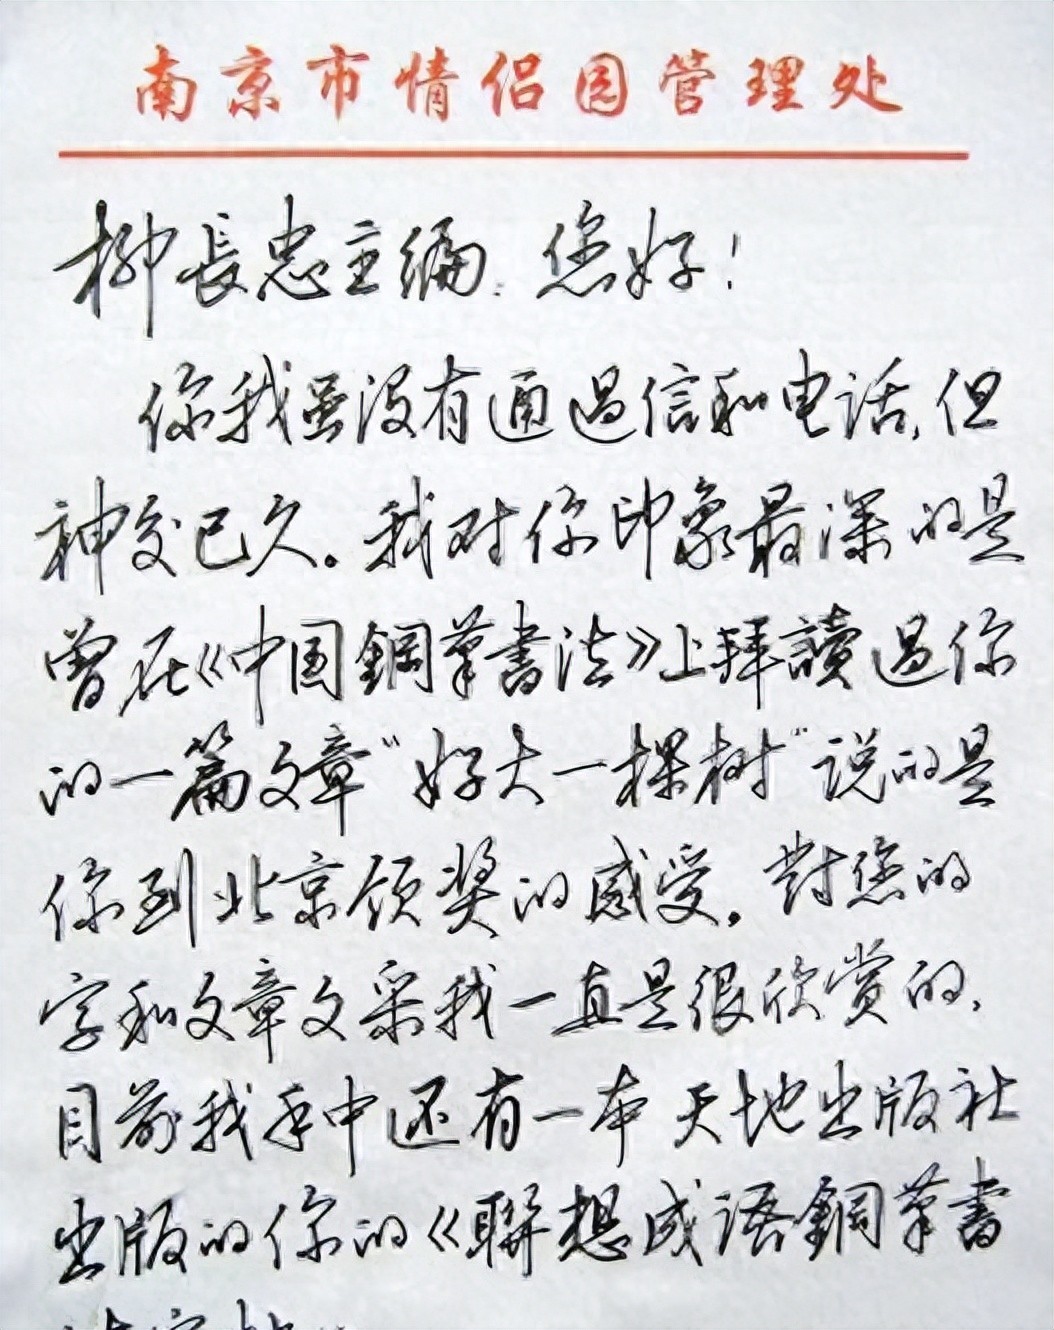 南京市情侣园管理处
柳長忠主编:您好!
你我虽没有通过信和电话,但
神交已久。我对你印象最深的是
曾在《中国鋼筆書法》上拜讀过你
的一篇文章“好大一棵树”说的是
你到北京领奖的感受。對您的
字和文章文采我一直是很欣赏的,
目前我手中还有一本天地出版社
出版的你的《聯想成语鋼筆書